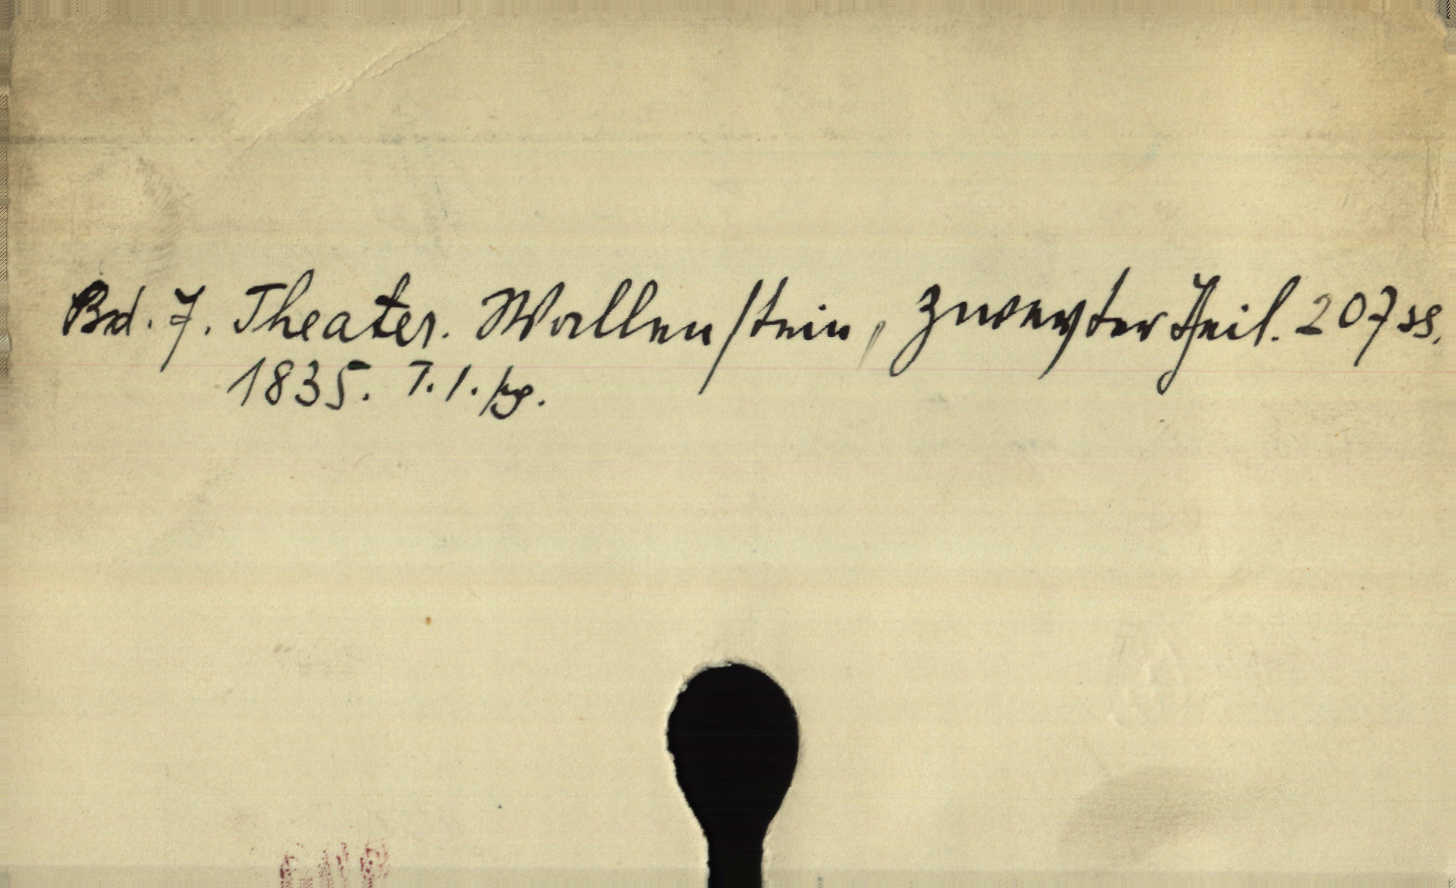 Bd. 7. Theater. Wallenstein, zweyter Theil. 207 ss.
1835. T. 1. kg.